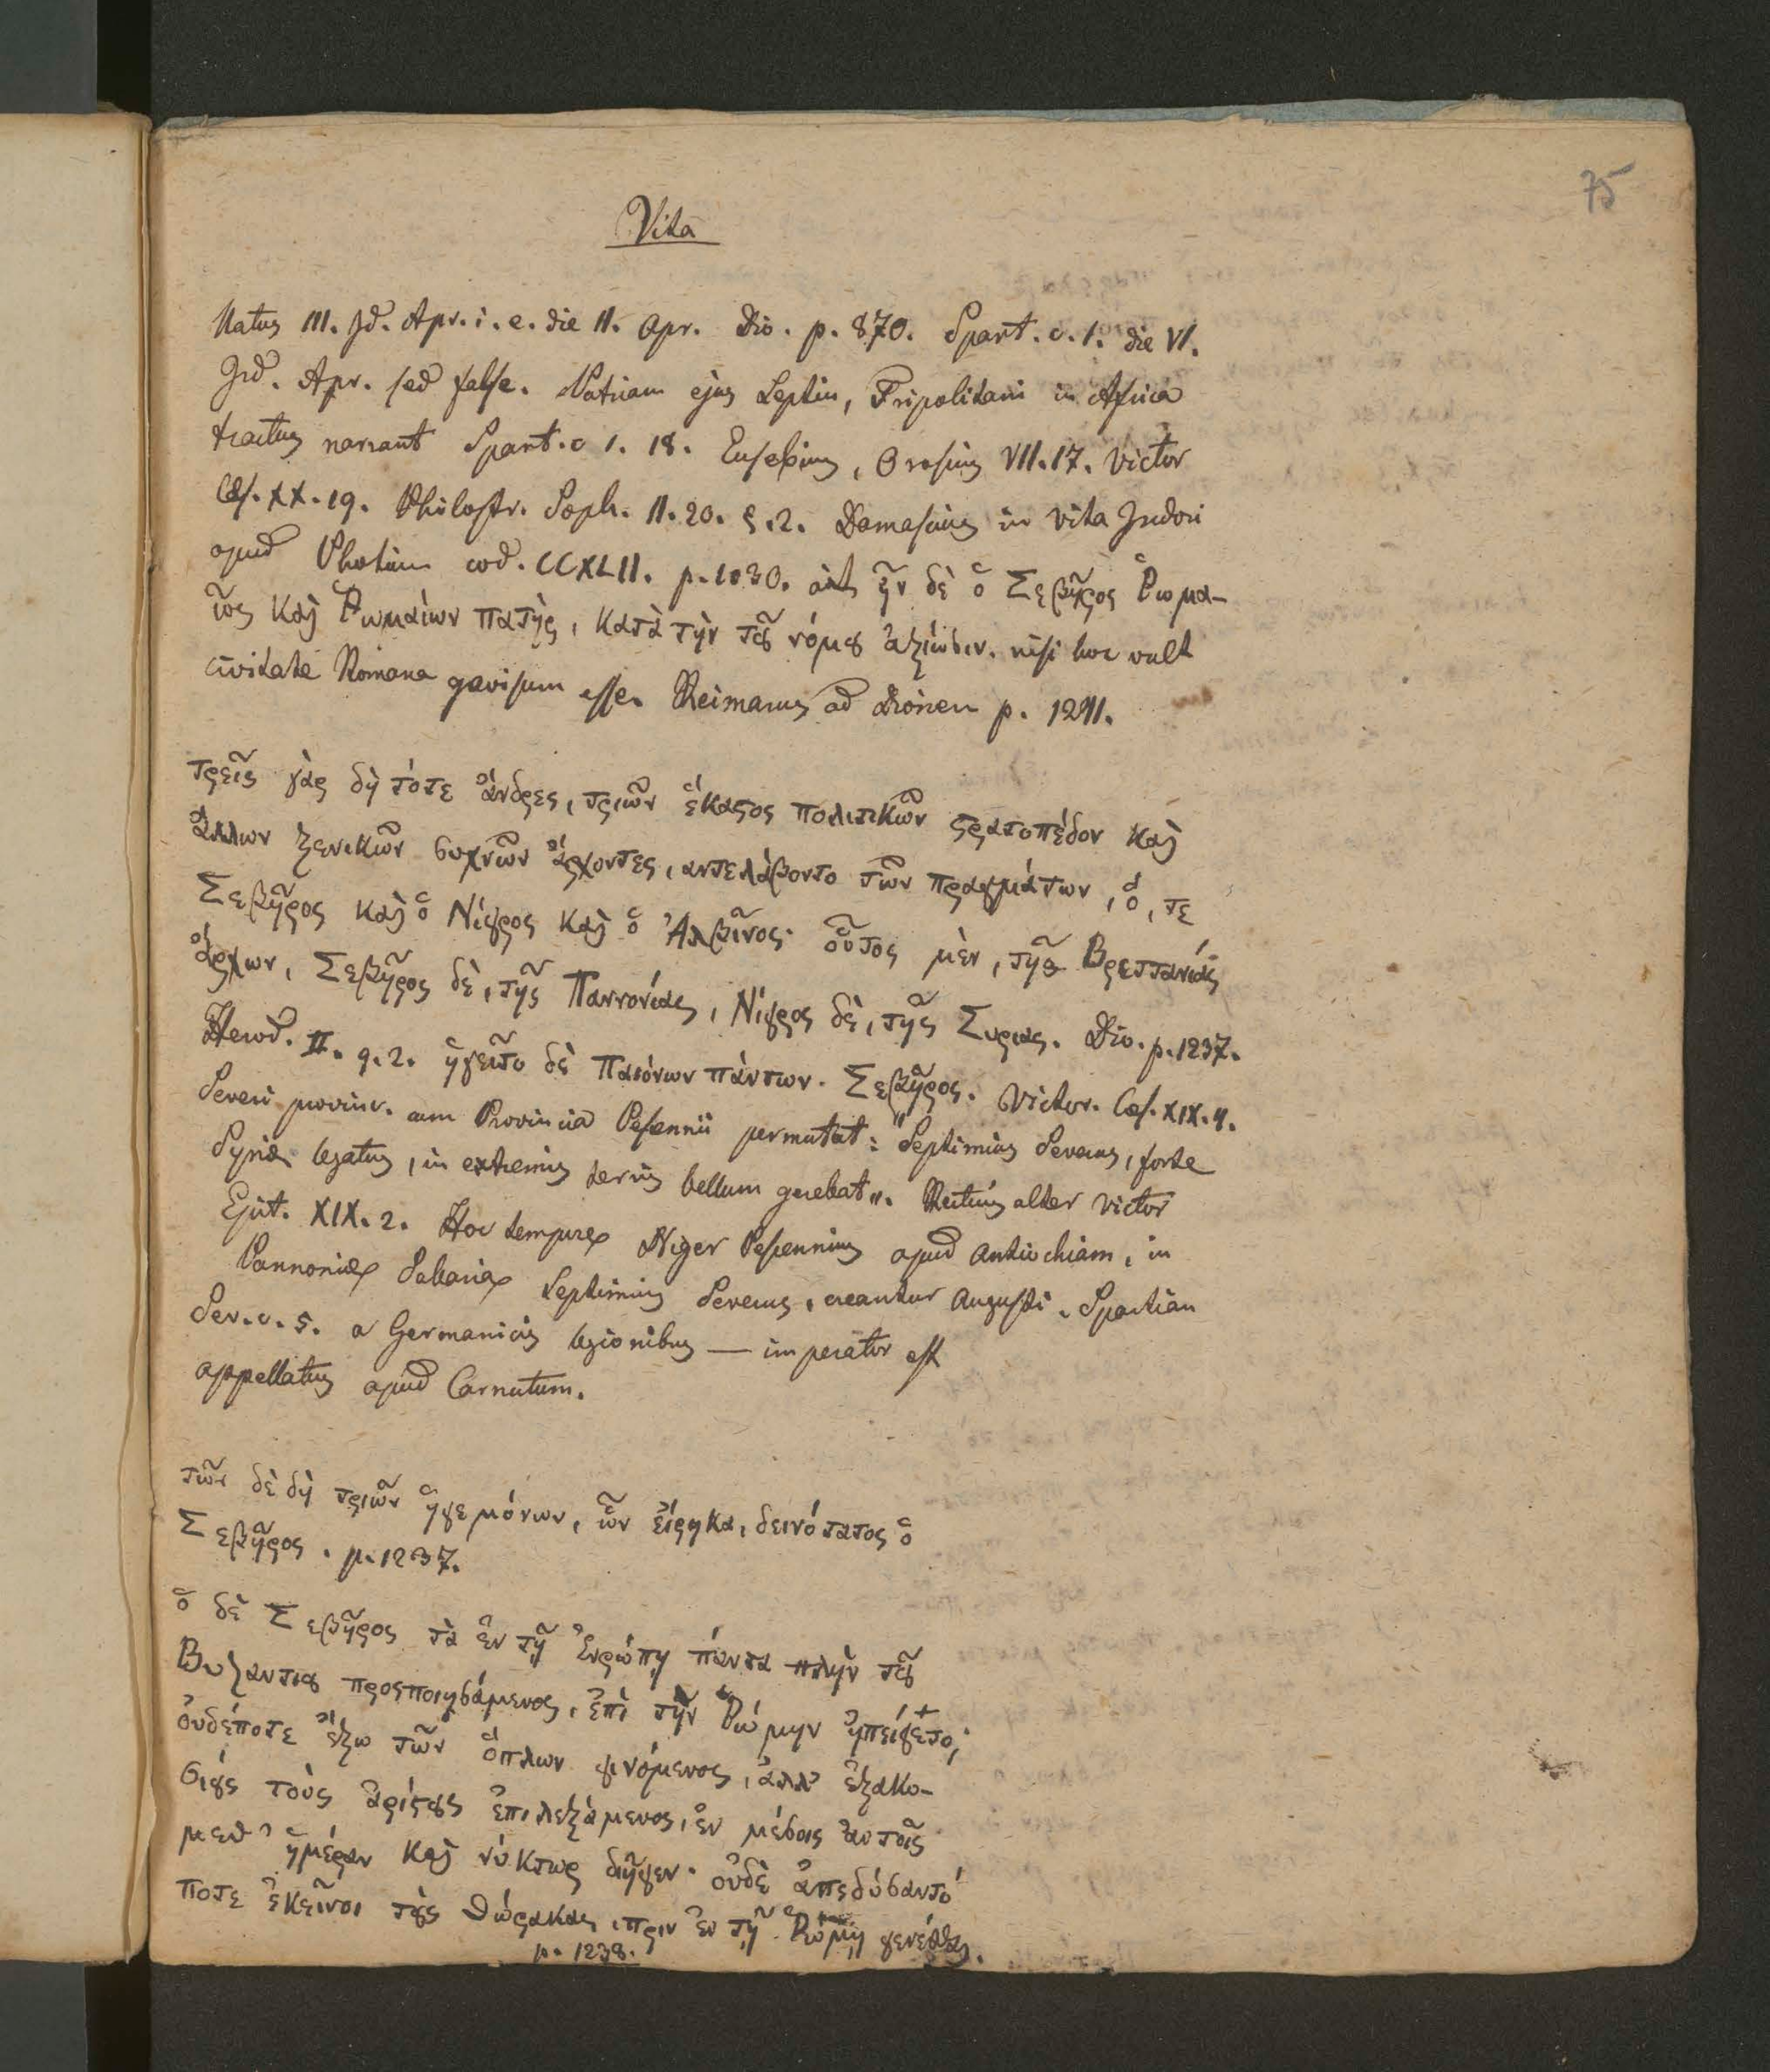 75
Vita
Natus III. Jd. Apr. i. e. die 11. Apr. Dio. p. 870. Spart. c. 1. die VI.
Jid. Apr. sed false. Patriam ejus Leptin, Tripolitani in Africa
tractus narrant Spart. c 1. 18. Eusebius, Orosius VII. 17. Victor
Cæs. XX. 19. Philostr. Soph. 11. 20. §. 2. Damascius in vita Isidori
apud Photium cod. CCXLII. p. 1030. ait ἦν δὲ ὁ Σεβῆρος Ῥωμα-
ῖος καὶ Ῥωμαίων πατὴρ, κατὰ τὴν τȣ͂ νόμȣ ἀξίωσιν. nisi hoc vult
civitate Romana gavisum esse. Reimarus ad Dionem p. 1241.
τρεῖς γὰρ δὴ τότε ἄνδρες, τριῶν ἕκαςος πολιτικῶν ςρατοπέδον καὶ
ἄλλων ξενικῶν συχνῶν ἄρχοντες, αντελάβοντο τῶν πραγμάτων, ὅ, τε
Σεβῆρος καὶ ὁ Νίγρος καὶ ὁ Ἀλβῖνος· οὗτος μὲν, τῆς Βρεττανίας
ἄρχων, Σεβῆρος δὲ, τῆς Παννονίας, Νίγρος δὲ, τῆς Συριας. Dio. p. 1237.
Herod. II. 9. 2. ἡγεῖτο δὲ Παιόνων πάντων. Σεβῆρος. Victor. Cæs. XIX. 4.
Severi provinc. cum Provincia Pescennii permutat: "Septimius Severus, forte
Syriæ legatus, in extremis terris bellum gerebat". Rectius alter Victor
Epit. XIX. 2. Hoc tempore Niger Pescennius apud Antiochiam, in
Pannoniæ Sabariæ Septimius Severus, creantur Augusti. Spartian
Sev. c. 5. a Germanicis legionibus — imperator est
appellatus apud Carnutum.
τῶν δὲ δὴ τριῶν ἡγεμόνων, ὧν εἴρηκα, δεινότατος ὁ
Σεβῆρος. p. 1237.
ὁ δὲ Σεβῆρος τὰ ἐν τῇ Ἐυρώπῃ πάντα πλὴν τȣ͂
Βυζαντιȣ προςποιησάμενος, ἐπὶ τὴν Ῥώμην ἠπείγετο;
ὀυδέποτε ἔξω τῶν ὅπλων γινόμενος, ἀλλ' ἑξακο-
σίȣς τοὺς ἀρίςȣς ἐπιλεξάμενος, ἐν μέσοις ἀυτοῖς
μεθ' ἡμέραν καὶ νύκτωρ διῆγεν· ὀυδὲ ἀπεδύσαντό
ποτε ἐκεῖνοι τȣ̀ς θώρακας, πριν ἐν τῇ Ῥώμῃ γενέσθαι.
p. 1238.